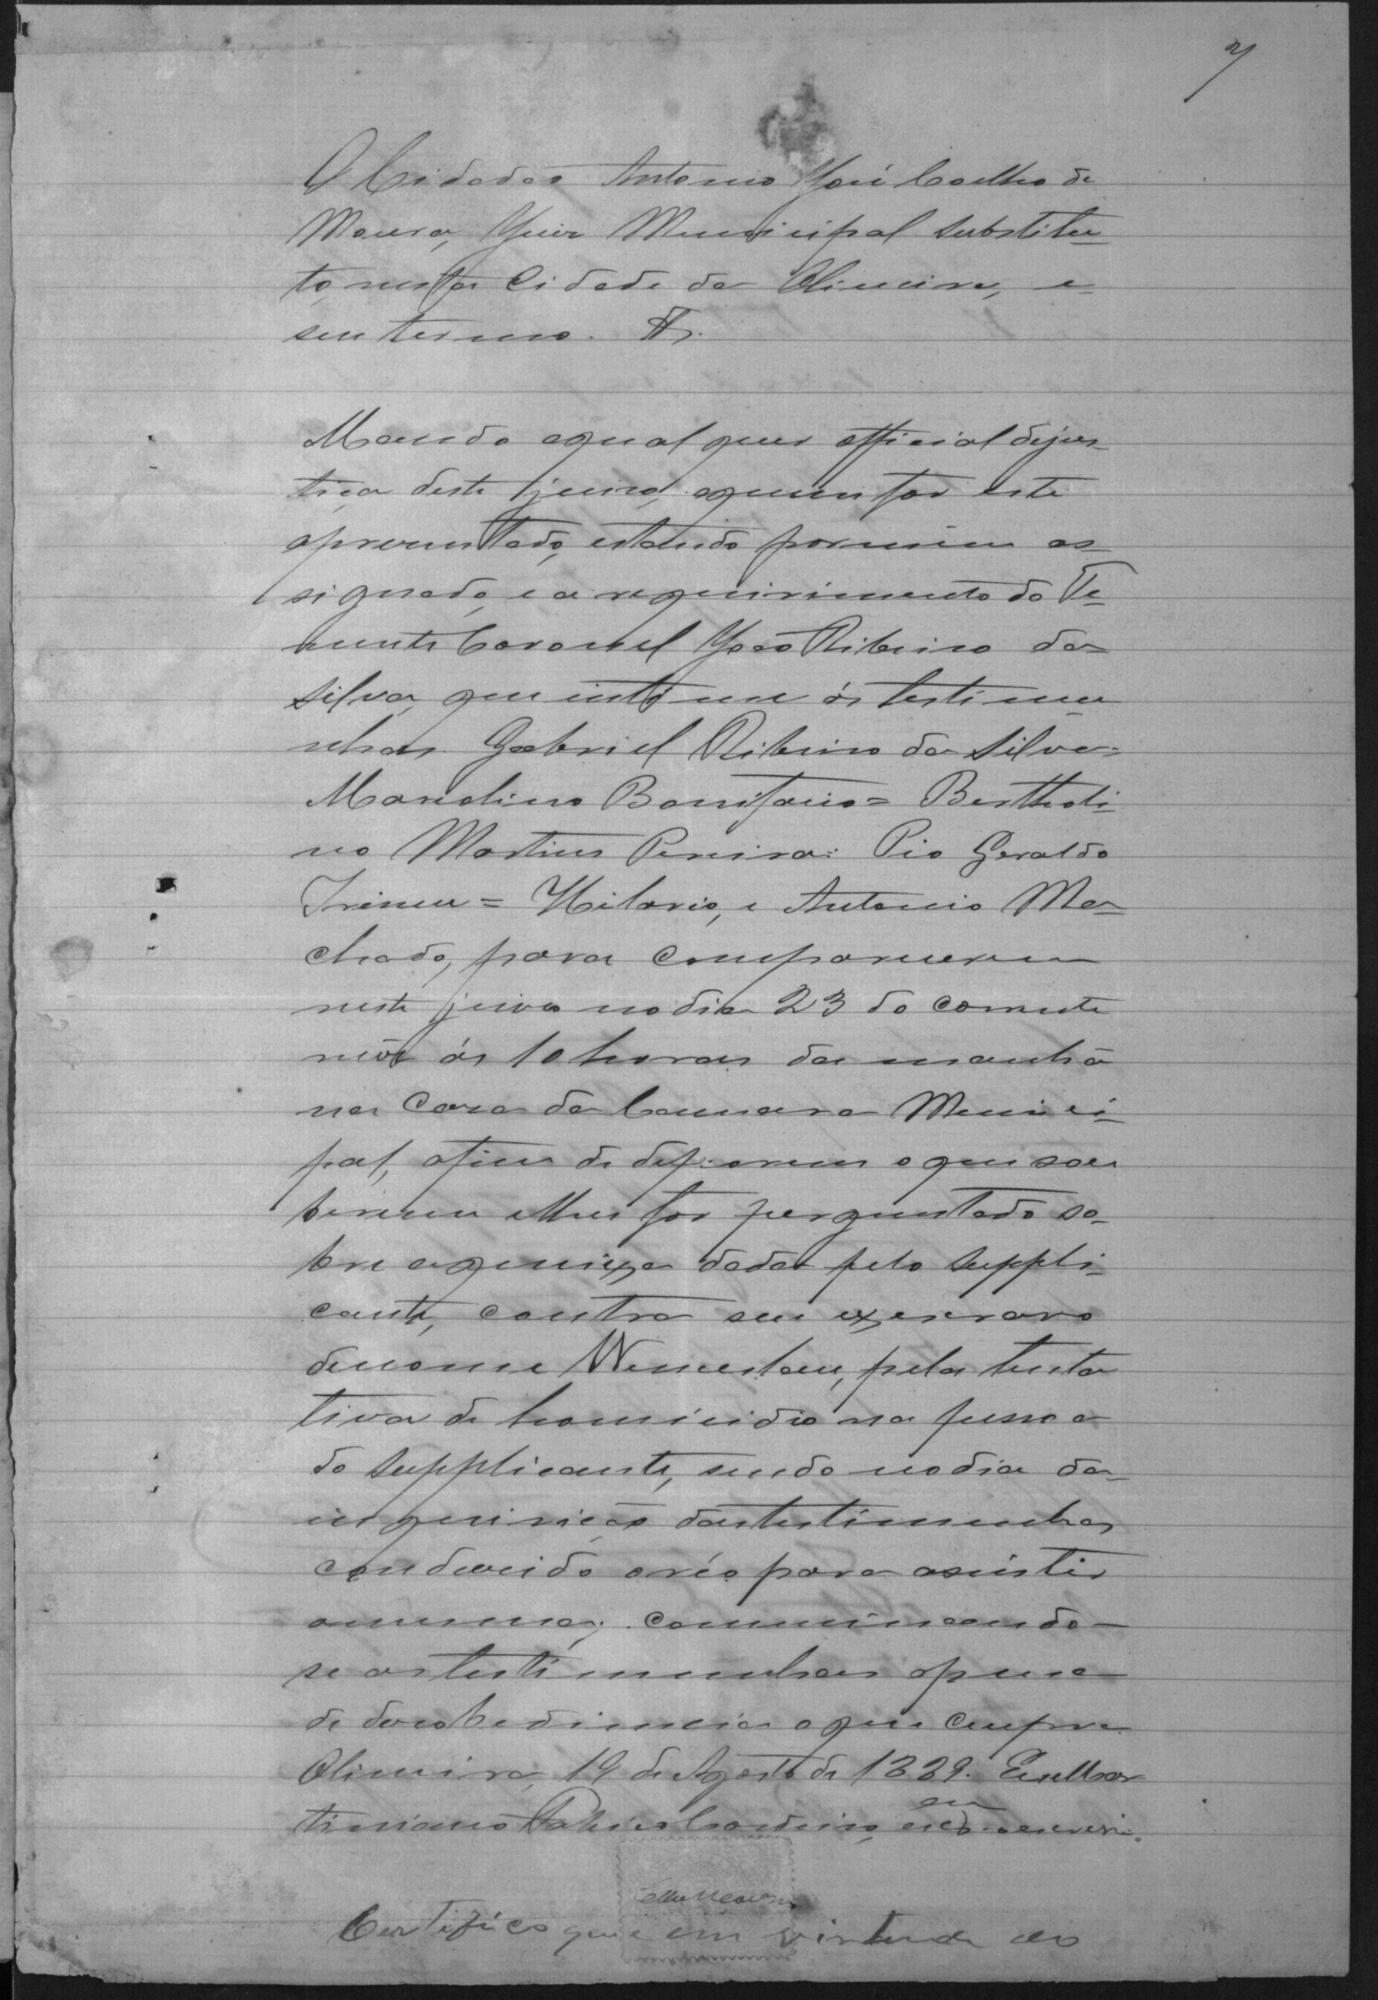 7
O Cidadão Antonio José Coelho de
Moura, Juiz Municipal substitu-
to, nesta Cidade da Oliveira, e
seu termo. &.
Mando aqualquer official dejus
tiça deste juizo, aquem for este
apresentado, estando pormim as
signado, e a requirimento do Te-
nente Coronel João Ribeiro da
Silva, que intime ás testimu
nhas Gabriel Ribeiro da Silva=
Marcolino Bonifacio= Bertholi-
no Martins Pereira: Pio Geraldo
Irineu= Hilario, e Antonio Ma-
chado, para comparecerem
neste juizo nodia 23 do corrente
mês ás 10 horas da manhã
na Casa da Camara Munici-
pal, afim de deporem o que sou
berem e lhes for perguntado so-
bre aqueixa dada pelo Suppli-
cante, contra seu exescravo
denome Wencesláu, pela tenta
tiva de homicidio na pessoa
do Supplicante, sendo nodia da
inquirição dastestimunhas
conduzido oréo para assistir
amesma; comminando-
se astestimunhas apena
de desobediencia o que cumpra.
Oliveira, 19 de Agosto de 1889. Eu Mar
timiano
em
Certifico que em virtude do